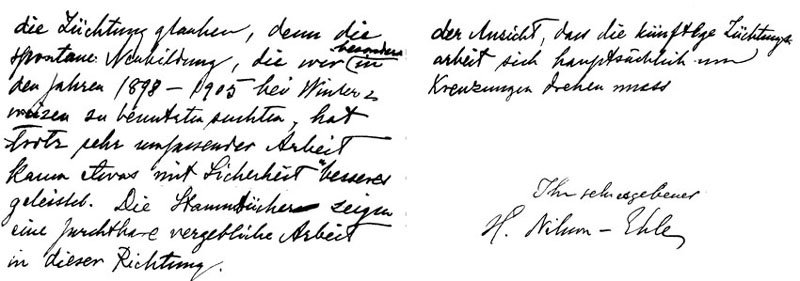 die Züchtung glauben, denn die
spontane Neubildung, die wir (besonders in
den Jahren 1898 – 1905 bei Winter-
weizen zu benutzen suchten, hat
trotz sehr umfassender Arbeit
kaum etwas mit Sicherheit besseres
geleistet. Die Stammbücher zeigen
eine furchtbare vergebliche Arbeit
in dieser Richtung.
der Ansicht, dass die künftige Züchtungs-
arbeit sich hauptsächlich um
Kreuzungen drehen muss
Ihr sehr ergebener
H. Nilsson-Ehle